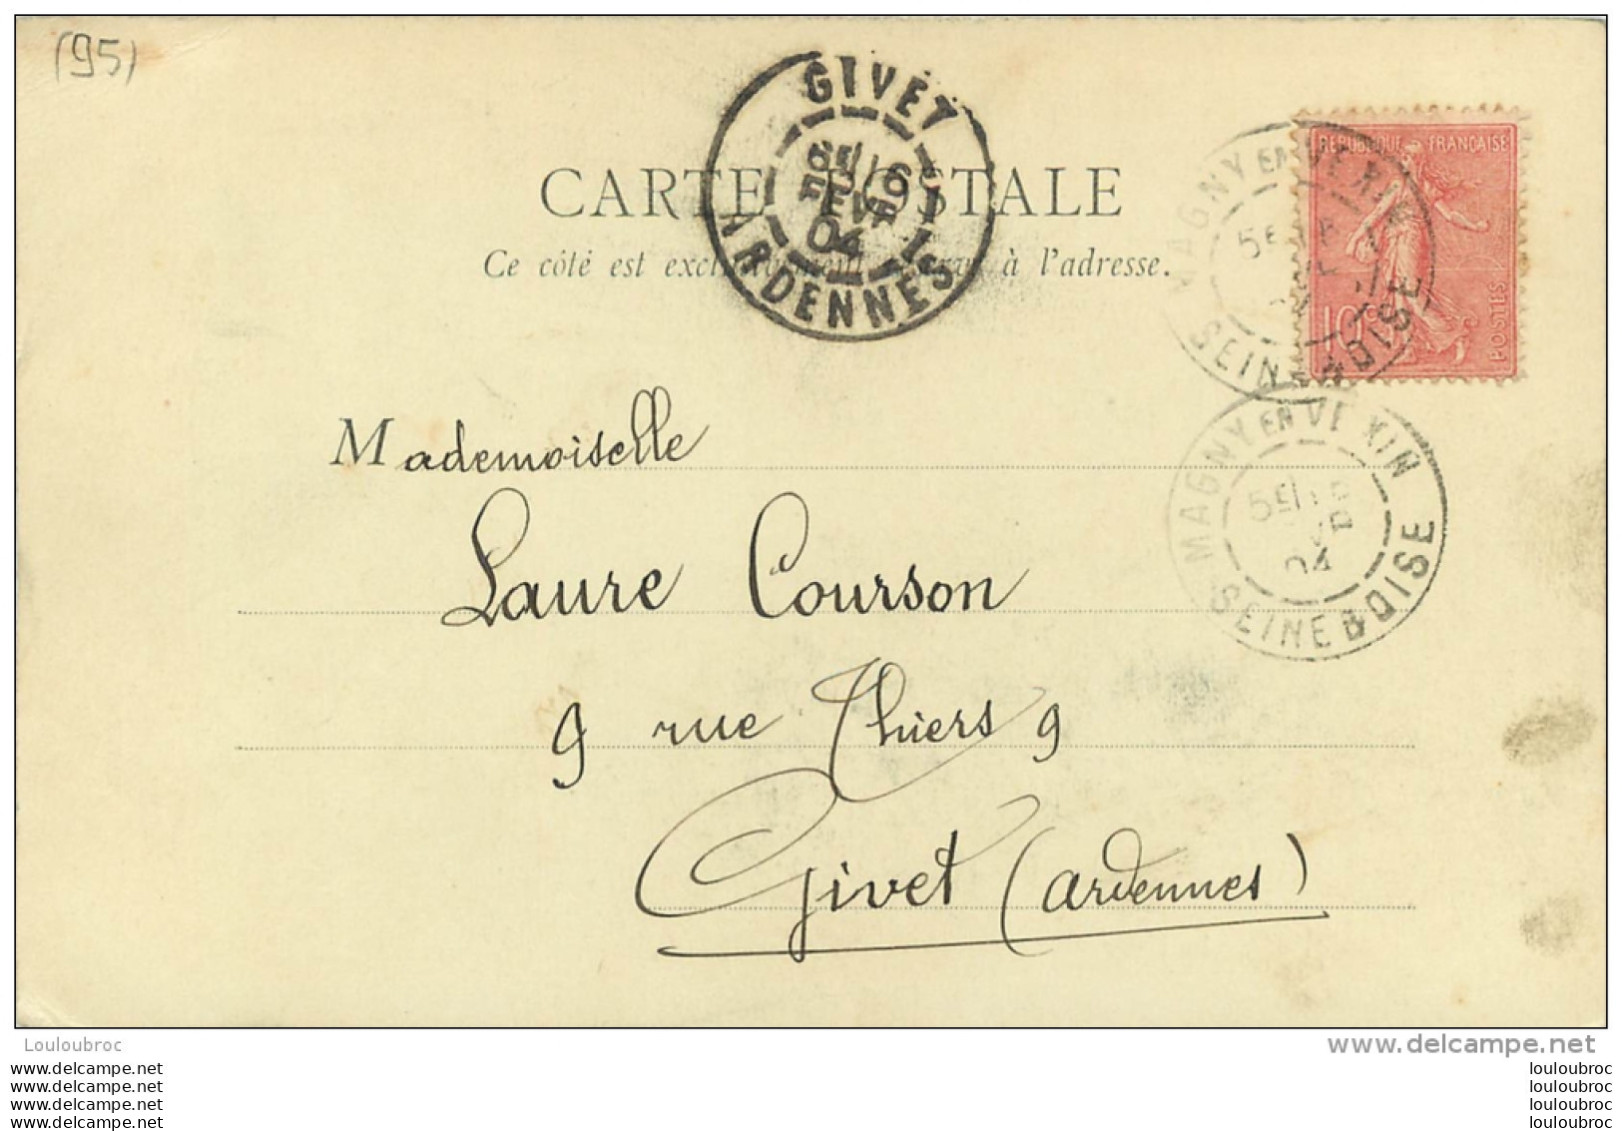 (95)
GIVET
6E / 6
FEVR
04
ARDENNES
MAGNY EN VEXIN
SEINE & OISE
REPUBLIQUE FRANÇAISE
10 c
POSTES
CARTE POSTALE
Ce côté est exclusivement réservé à l'adresse.
MAGNY EN VEXIN
5E
04
SEINE & OISE
Mademoiselle
Laure Courson
9 rue Thiers 9
Givet (Ardennes)
Louloubroc
www.delcampe.net
www.delcampe.net louloubroc
www.delcampe.net louloubroc
www.delcampe.net louloubroc
www.delcampe.net louloubroc